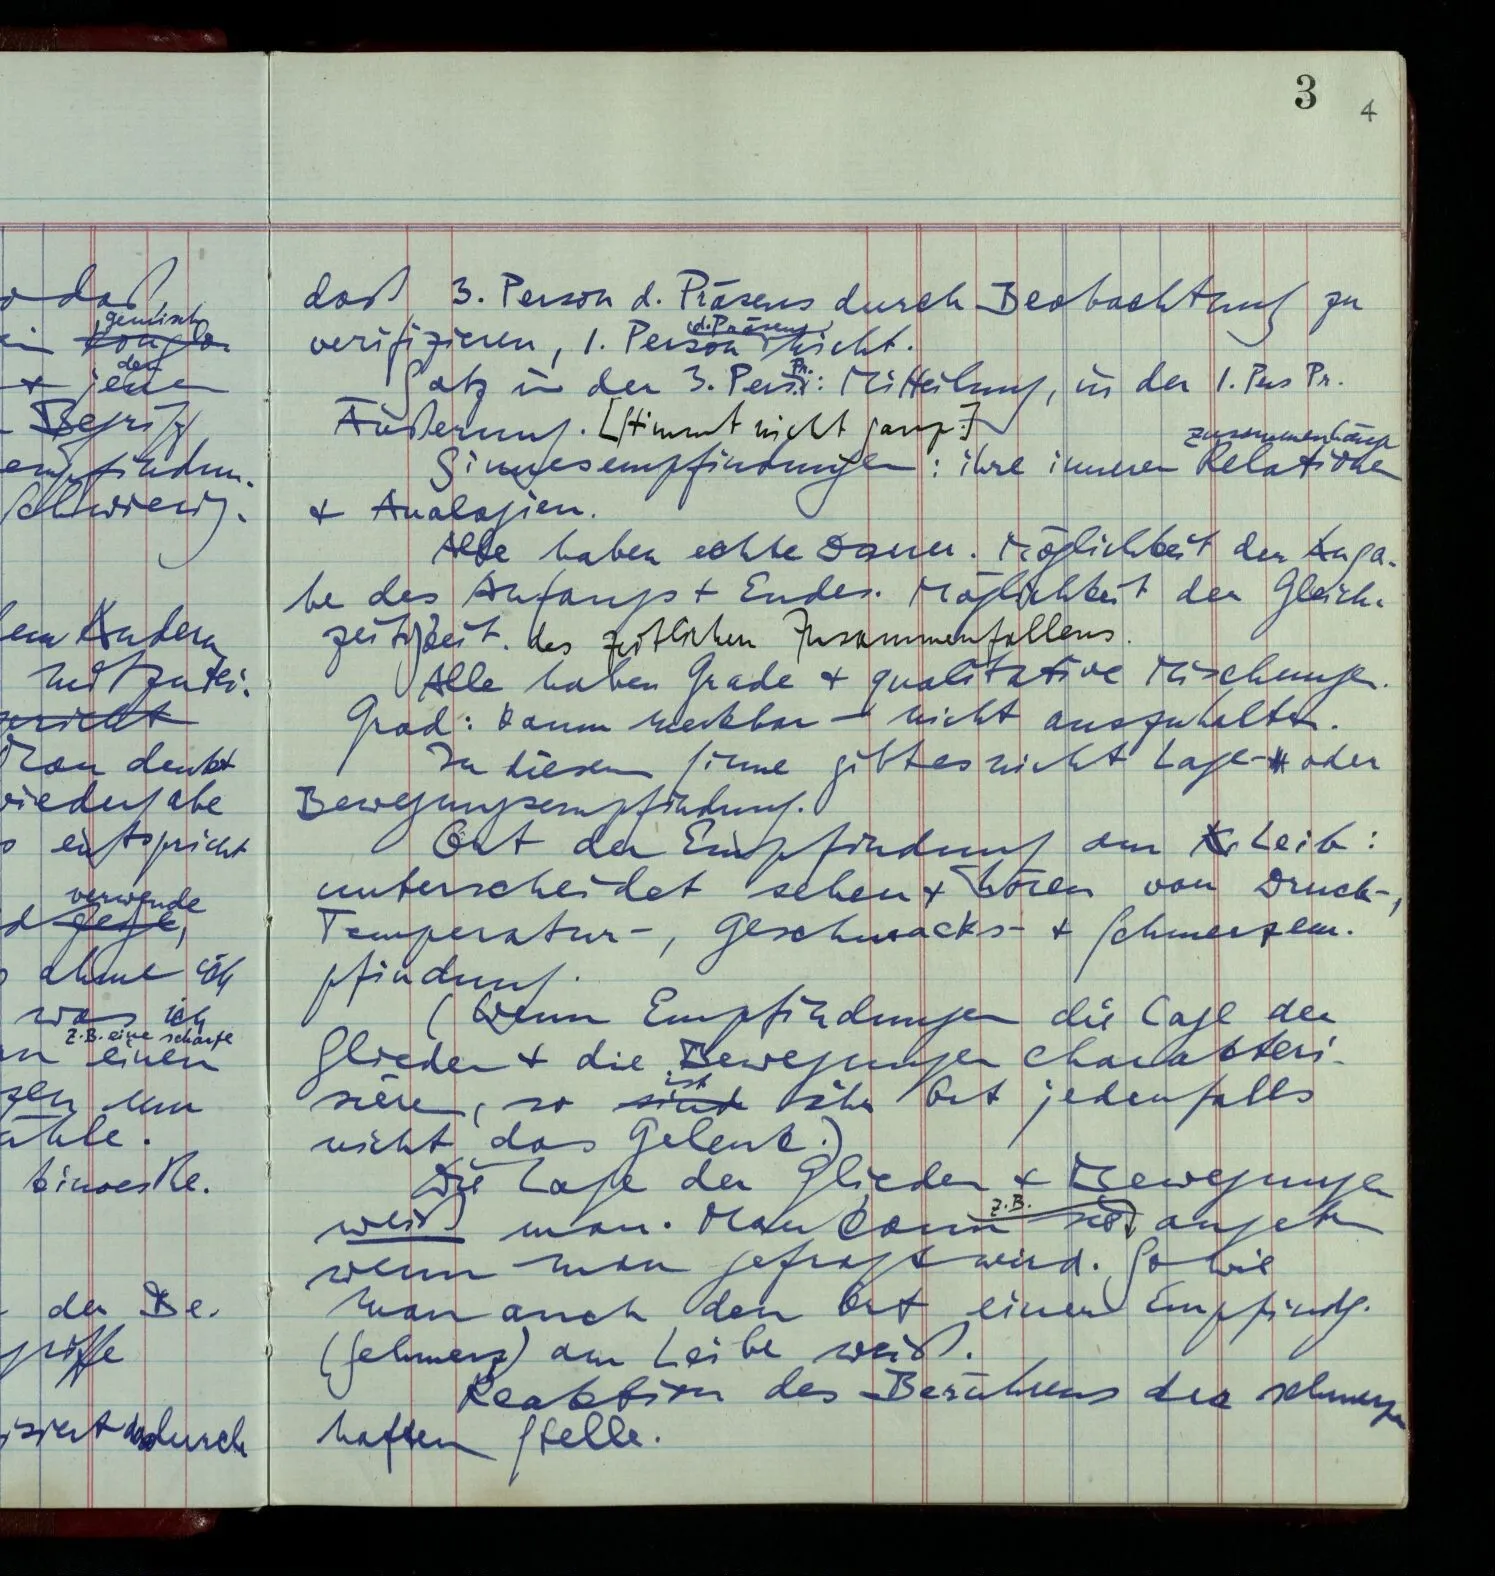 3
4
o daß
gemisch
ein
der
+ jenen
Begriff
empfindun-
schwierig.
dem Andern
mitzutei-
Man denkt
wiedergabe
s entspricht
verwende
d zeige,
s ahme ich
was ich
z.B. eine scharfe
an einen
zen um
ähle.
hinweise.
der Be-
griffe
isiert dadurch
daß 3. Person d. Präsens durch Beobachtung zu
d. Präsens
verifizieren, 1. Person nicht.
Pr.
Satz in der 3. Pers.: Mitteilung, in der 1. Pers Pr.
Äußerung. [Stimmt nicht ganz.]
zusammenhänge
Sinnesempfindungen: ihre inneren Relationen
+ Analogien.
Alle haben echte Dauer. Möglichkeit der Anga-
be des Anfangs + Endes. Möglichkeit der Gleich-
zeitigkeit. des zeitlichen Zusammenfallens.
Alle haben Grade + qualitative Mischungen.
Grad: kaum merkbar – nicht auszuhalten.
In diesem Sinne gibt es nicht Lage- oder
Bewegungsempfindung.
Ort der Empfindung am Leib:
unterscheidet sehen + hören von Druck-,
Temperatur-, Geschmacks- + Schmerzem-
pfindung.
(Wenn Empfindungen die Lage der
Glieder + die Bewegungen charakteri-
ist
sieren, so sind ihr Ort jedenfalls
nicht das Gelenk.)
Die Lage der Glieder + Bewegungen
z.B.
weiß man. Man kann sie angeben
wenn man gefragt wird. So wie
man auch den Ort einer Empfindg.
(Schmerz) am Leibe weiß.
Reaktion des Berührens der schmerz
haften Stelle.